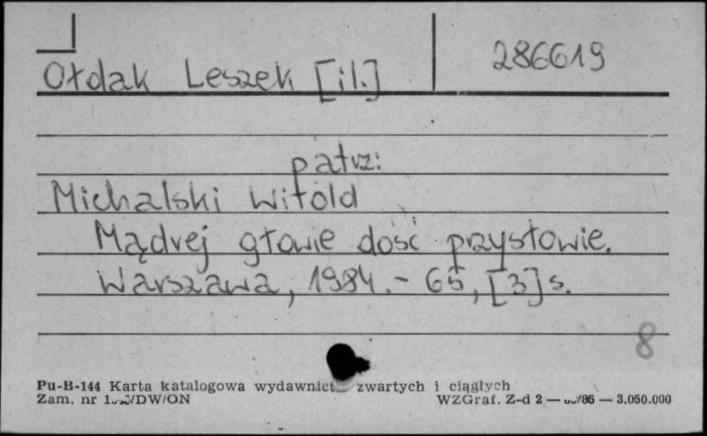 286619
Ołdak Leszek [il.]
patrz:
Michalski Witold
Mądrej głowie dość przysłowie.
Warszawa, 1984.- 65, [3] s.
8
Pu-B-144 Karta katalogowa wydawnict zwartych i ciągłych
Zam. nr /DW/ON WZGraf. Z-d 2 — /86 — 3.050.000